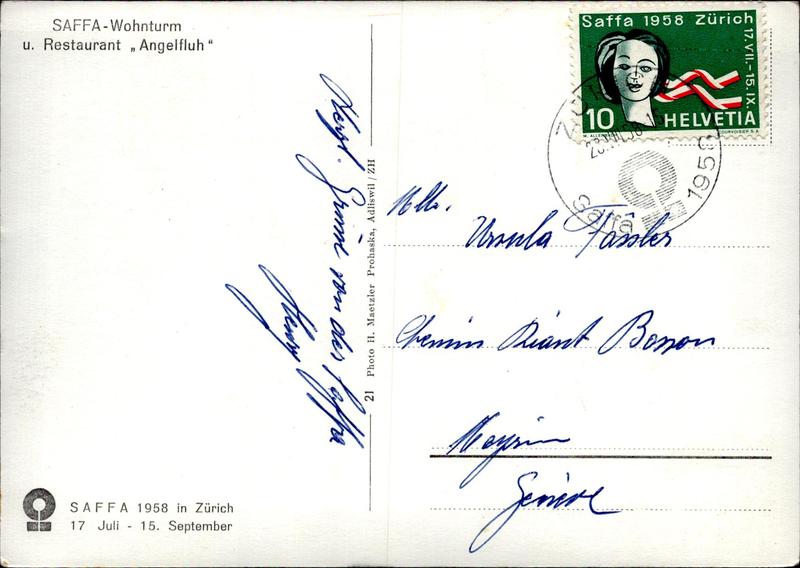 SAFFA-Wohnturm
u. Restaurant „Angelfluh"
Herzl. Grüsse von der Saffa
Henry
21 Photo H. Maetzler Prohaska, Adliswil / ZH
SAFFA 1958 in Zürich
17 Juli - 15. September
Saffa 1958 Zürich
17. VII.–15. IX.
10 HELVETIA
COURVOISIER S.A.
1958
Saffa
Mlle.
Ursula Fässler
Chemin Riant Bosson
Meyrin
Genève